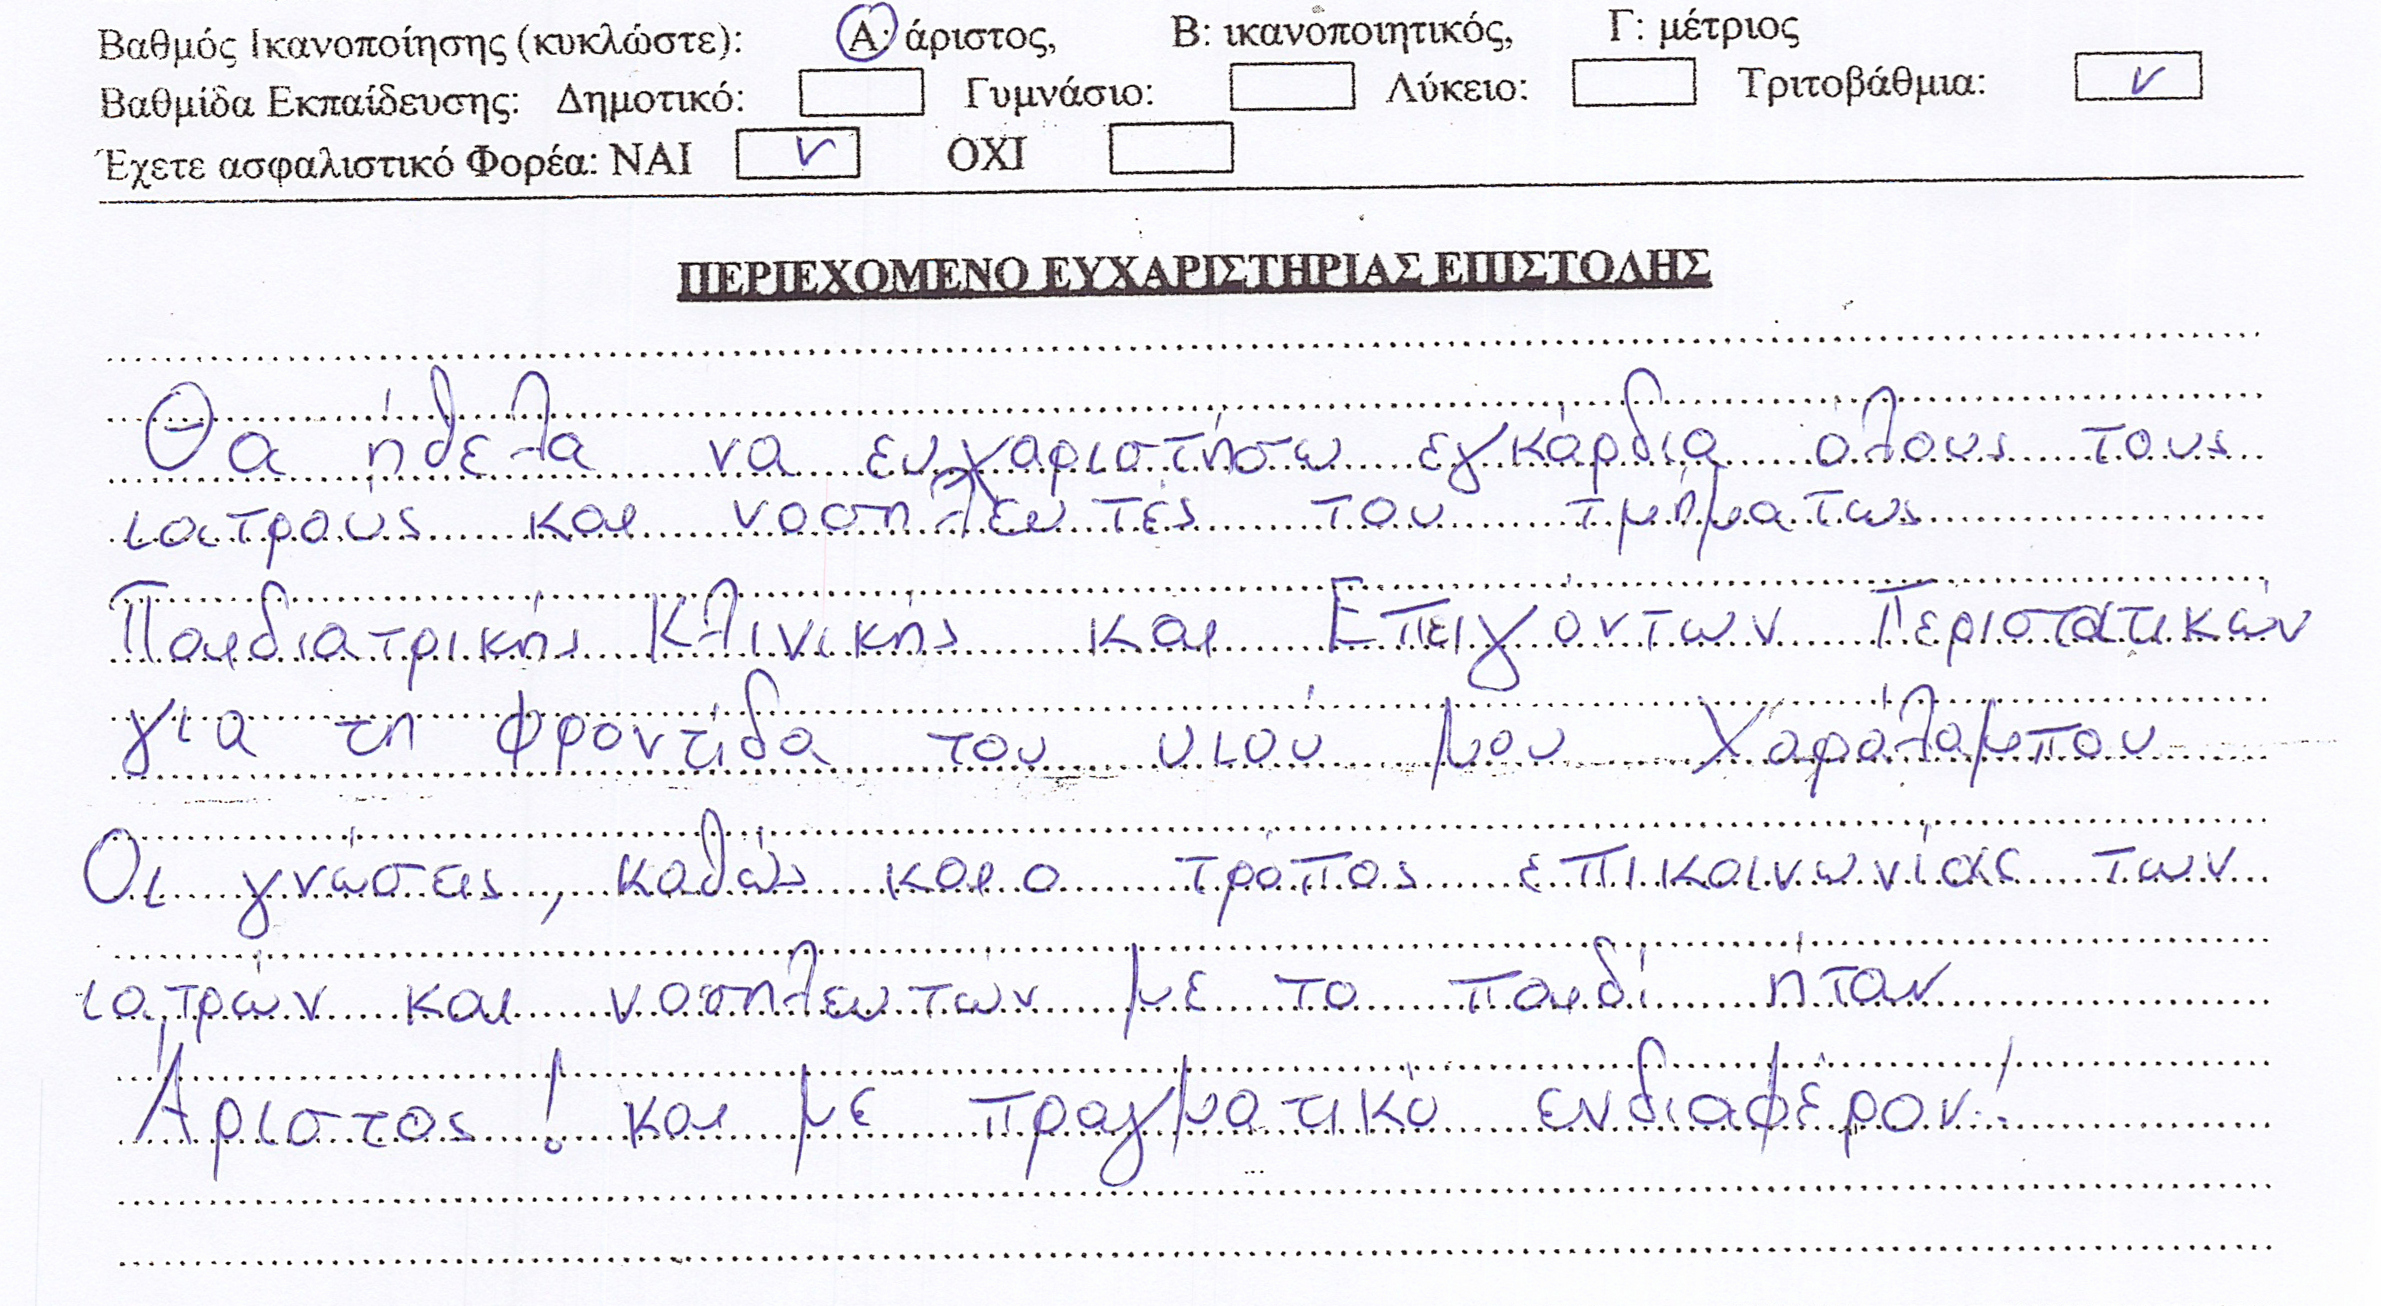 Βαθμός Ικανοποίησης (κυκλώστε): Α: άριστος, Β: ικανοποιητικός, Γ: μέτριος
Βαθμίδα Εκπαίδευσης: Δημοτικό: Γυμνάσιο: Λύκειο: Τριτοβάθμια: ✓
Έχετε ασφαλιστικό Φορέα: ΝΑΙ ✓ ΟΧΙ
ΠΕΡΙΕΧΟΜΕΝΟ ΕΥΧΑΡΙΣΤΗΡΙΑΣ ΕΠΙΣΤΟΛΗΣ
Θα ήθελα να ευχαριστήσω εγκάρδια όλους τους
ιατρούς και νοσηλευτές του τμήματως
Παιδιατρικής Κλινικής και Επειγόντων Περιστατικών
για τη φροντίδα του υιού μου Χαράλαμπου
Οι γνώσεις, καθώς και ο τρόπος επικοινωνίας των
ιατρών και νοσηλευτών με το παιδί ήταν
Άριστος! και με πραγματικό ενδιαφέρον!